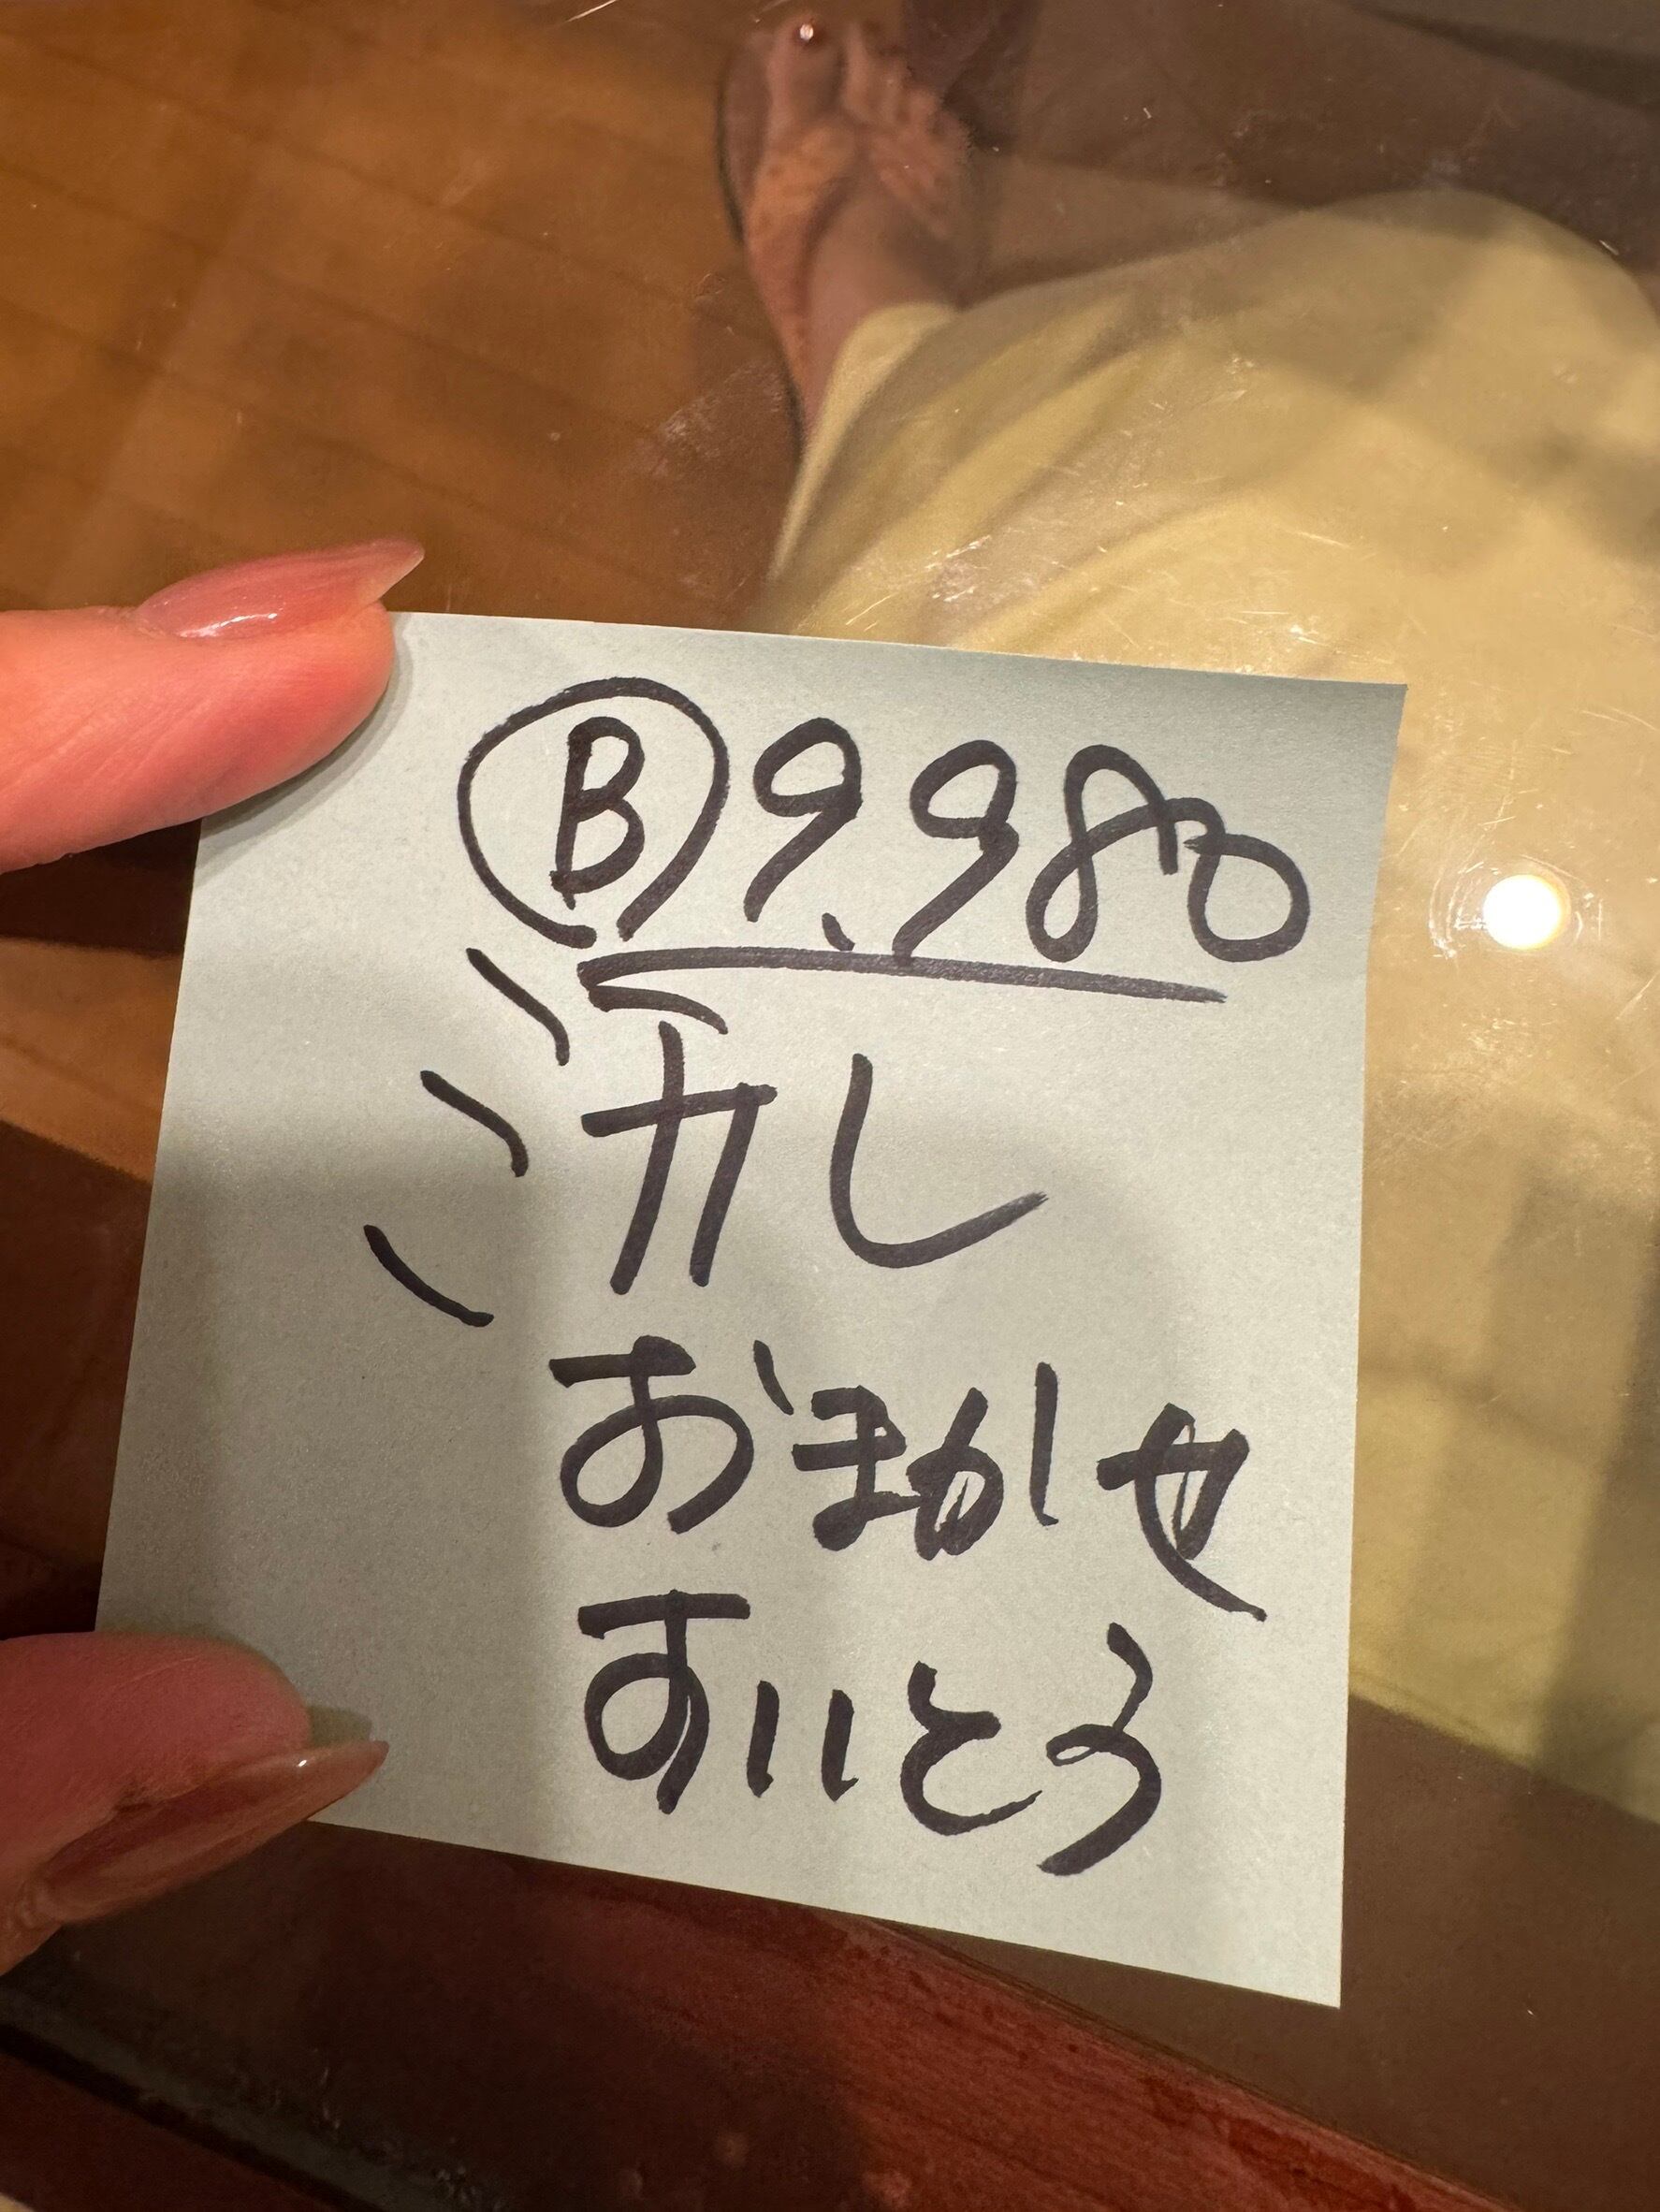 Ⓑ 9,980
流し
おまかせ
すいとう